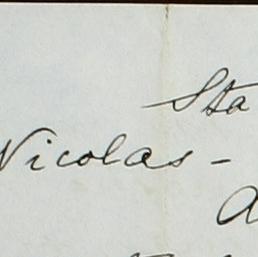 Sta
Nicolas -